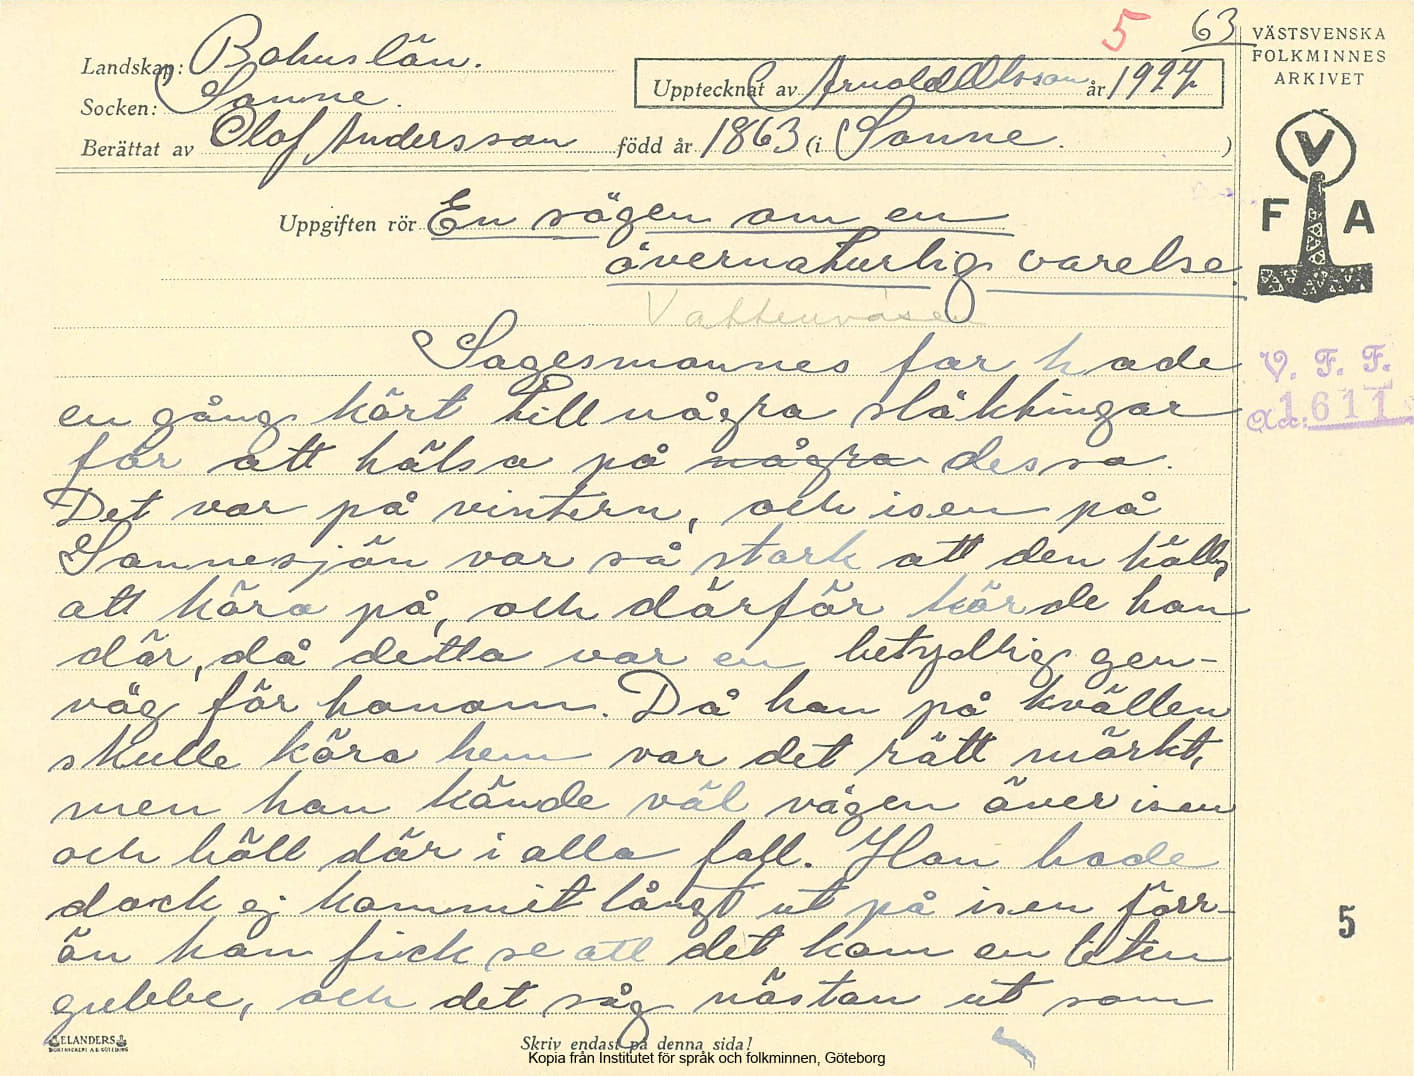 5 63
VÄSTSVENSKA
FOLKMINNES
ARKIVET
Landskap: Bohuslän.
Socken: Sanne.
Upptecknat av Arnold Olsson år 1927
Berättat av Olof Andersson född år 1863 (i Sanne. )
V
F A
Uppgiften rör En sägen om en
övernaturlig varelse.
Vattenväsen
Sagesmannes far hade
en gång kört till några släktingar
för att hälsa på några dessa.
Det var på vintern, och isen på
Sannesjön var så stark att den höll,
att köra på, och därför körde han
där, då detta var en betydlig gen-
väg för honom. Då han på kvällen
skulle köra hem var det rätt mörkt,
men han kände väl vägen över isen
och höll där i alla fall. Han hade
dock ej kommit långt ut på isen förr-
än han fick se att det kom en liten
gubbe, och det såg nästan ut som
V. F. F.
1611
5
ELANDERS
Skriv endast på denna sida!
Kopia från Institutet för språk och folkminnen, Göteborg